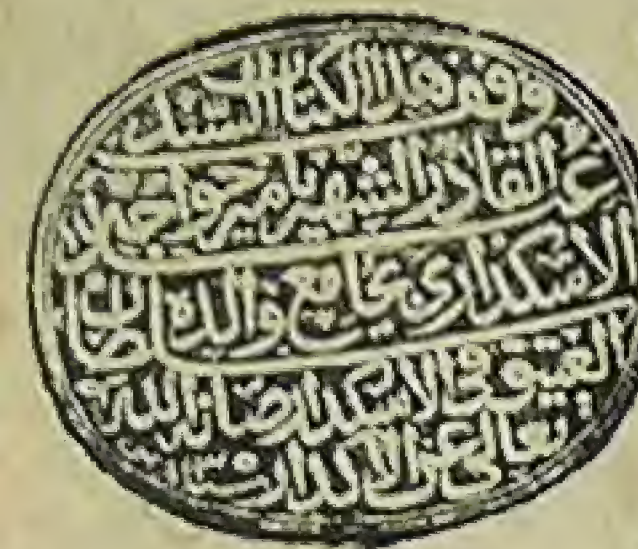 وقف هذا الكتاب السيد
عبد القادر الشهير بامير خواجه
الاسكداري بجامع والده
العتيق في الاسكدار صانه الله
تعالى عن الاكدار